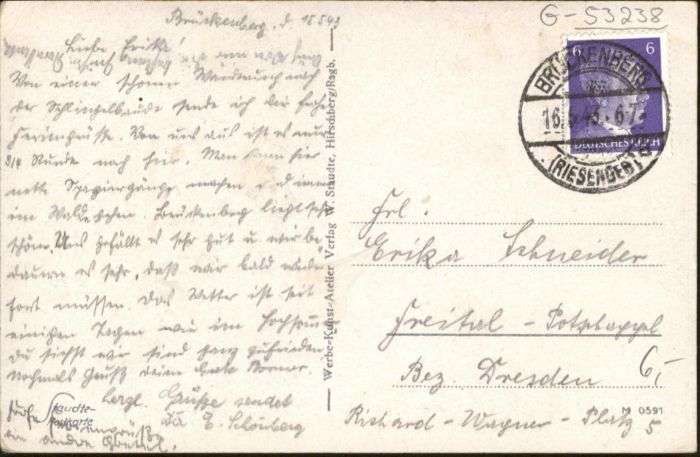 G-53238
Brückenberg, d. 15.5.43
Liebe Erika!
Von einer schönen Wanderung nach
der Schlingelbaude sende ich dir frohe
Feriengrüße. Von uns aus ist es nur
3/4 Stunde nach hier. Man kann hier
nette Spaziergänge machen u. d. immer
im Walde gehen. Brückenberg liegt sehr
schön. Uns gefällt es sehr gut u. wir be-
dauern es sehr, daß wir bald wieder
fort müssen. Das Wetter ist seit
einigen Tagen wie im Hochsommer
Du siehst wir sind ganz zufrieden
Nochmals Gruß deine
Herzl. Grüße sendet
E. Schönberg
Werbe-Kunst-Atelier Verlag W. Staudte, Hirschberg/Rsgb.
Staudte-
BRÜCKENBERG
16. 6-7
(RIESENGEB)
6 6
DEUTSCHES REICH
Frl.
Erika Schneider
Freital - Potschappel
Bez. Dresden
Richard-Wagner-Platz 5
6,-
M 0591